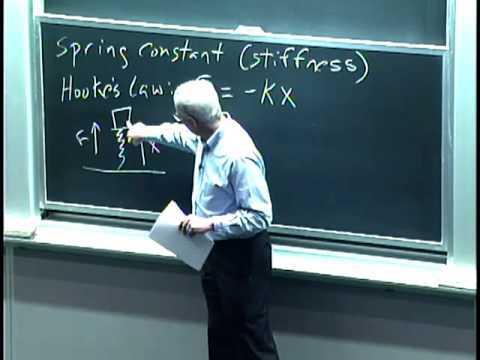 Spring constant (stiffness)
Hooke's Law: = -Kx
F x